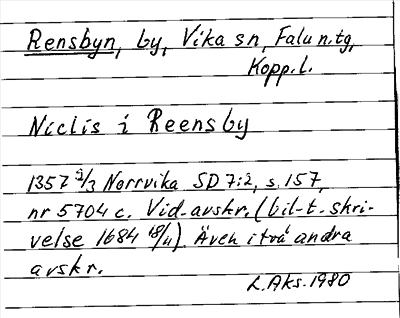 Rensbyn, by, Vika sn, Falu n. tg,
Kopp. l.
Niclis i Reensby
1357 9/3 Norrvika SD 7:2, s. 157,
nr 5704 c. Vid. avskr. (bil. t. skri-
velse 1684 18/11). Även i två andra
avskr.
L. Aks. 1980